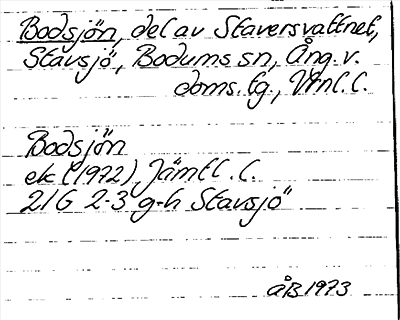 Bodsjön, del av Staversvattnet,
Stavsjö, Bodums sn, Ång. v.
doms. tg., Vtnl. l.
Bodsjön
ek (1972) Jämtl. l.
21G 2-3 g-h Stavsjö
ÅB 1973